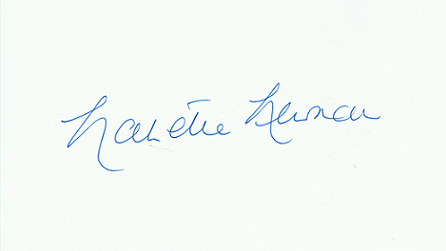 Nanette Newman